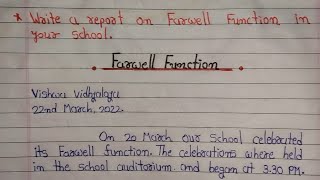 * Write a report on Farwell Function in
your school.
• Farwell Function •
Vishwa Vidhyalaya
22nd March, 2022.
On 20 March our School celebrated
its Farwell function. The celebrations where held
in the school auditorium and began at 3:30 PM.